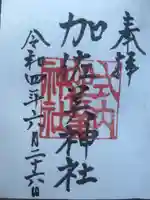 奉拝
式内
加佐美神社
神社
令和四年六月二十六日